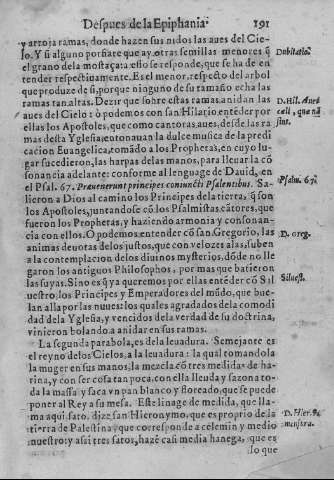 Despues de la Epiphania 191
y arroja ramas, donde hazen sus nidos las aues del Cie-
lo. Y si alguno porfiare que ay otras semillas menores q̃
el grano de la mostaça: a esso se responde, que se ha de en
tender respectiuamente. Es el menor, respecto del arbol
que produze de si, porque ninguno de su tamaño echa las
ramas tan altas. Dezir que sobre estas ramas anidan las
aues del Cielo: ò podemos con san Hilario entẽder por
ellas los Apostoles, que como cantoras aues, desde las ra
mas desta Yglesia, entonauan la dulce musica de la predi
cacion Euangelica, tomãdo a los Prophetas, en cuyo lu-
gar sucedieron, las harpas de las manos, para lleuar la cõ
sonancia adelante: conforme al lenguage de Dauid, en
el Psal. 67. Præuenerunt principes coniuncti Psalentibus. Sa-
lieron a Dios al camino los Principes de la tierra, q̃ son
los Apostoles, juntandose cõ los Psalmistas cãtores, que
fueron los Prophetas, y haziendo armonia y consonan-
cia con ellos. O podemos entender cõ san Gregorio, las
animas deuotas de los justos, que con velozes alas, suben
a la contemplacion de los diuinos mysterios, dõde no lle
garon los antiguos Philosophos, por mas que batieron
las suyas. Sino es q̃ ya queremos por ellas entẽder cõ Sil
uestro, los Principes y Emperadores del mũdo, que bue-
lan alla por las nuues: los quales agradados de la comodi
dad de la Yglesia, y vencidos de la verdad de su doctrina,
vinieron bolando a anidar en sus ramas.
La segunda parabola, es de la leuadura. Semejante es
el reyno de los Cielos, a la leuadura: la qual tomandola
la muger en sus manos, la mezcla cõ tres medidas de ha-
rina, y con ser cosa tan poca, con ella lleuda y sazona to-
da la massa y saca vn pan blanco y floreado, que se puede
poner al Rey a su mesa. Este linage de medida, que lla-
ma aqui sato, dize san Hieronymo, que es proprio de la
tierra de Palestina, y que corresponde a celemin y medio
nuestro: y assi tres satos, hazẽ casi media hanega, que es
lo que
Dubitatio.
D. Hil. Aues
cœli,
Psalm. 67.
D. Greg.
Siluest.
D. Hier.